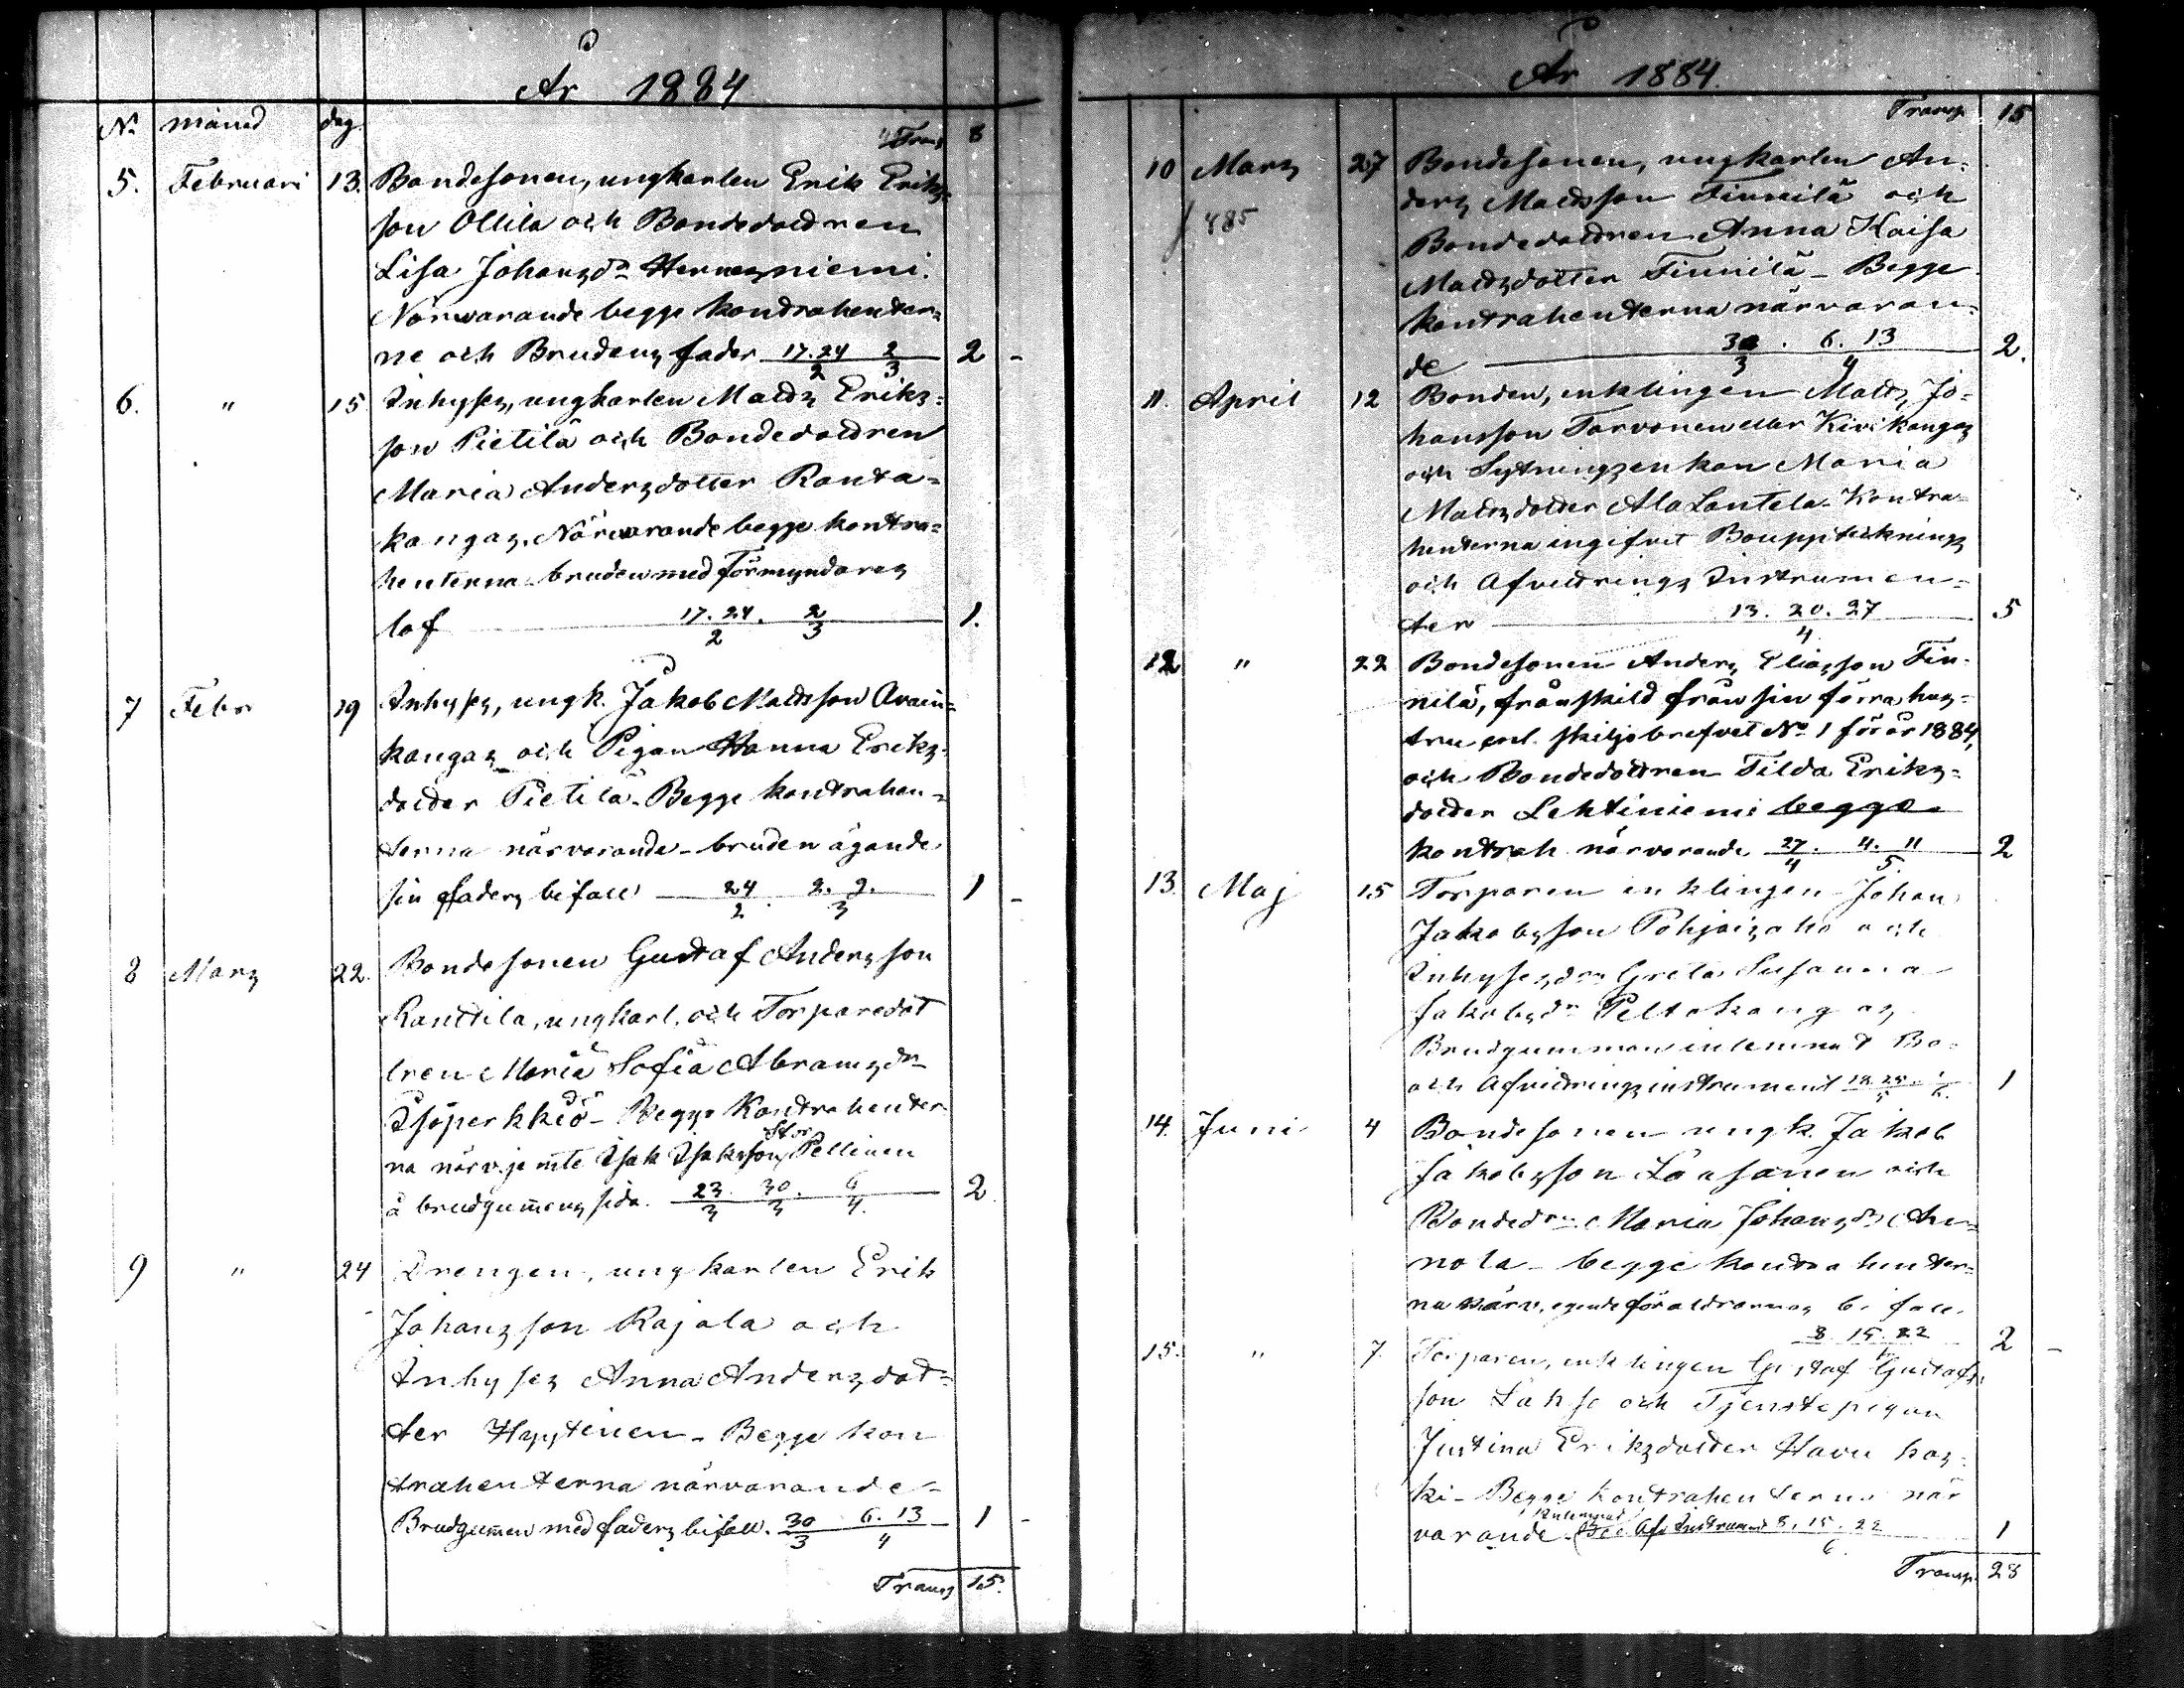 År 1884
No månad dag.
Transp 8
5. Februari 13. Bondesonen, ungkarlen Erik Eriks=
son Ollila och Bondedottren
Lisa Johansdr Hernesniemi.
Närvarande begge kontrahenter=
ne och Brudens fader 17.24/2 2/3 2 -
6. " 15 Inhyses, ungkarlen Matts Eriks=
son Pietilä och Bondedottren
Maria Andersdotter Ranta=
kangas. Närvarande begge kontra=
henterna bruden med förmyndares
lof 17.24./2 2/3 1.
7 Febr 19 Inhyses, ungk. Jakob Mattsson Avain=
kangas och Pigan Hanna Eriks=
dotter Pietilä. Begge kontrahen=
terna närvarande - bruden ägande
sin faders bifall 24/2. 2. 9./3 1 -
8 Mars 22. Bondesonen Gustaf Andersson
Ranttila, ungkarl, och Torparedot
tren Maria Sofia Abramsdr
Isoperkkiö - Begge Kontrahenter
na närv. jemte Isak Isaksson Stor Pellinen
å brudgummens sida. 23/3 30./3 6/4. 2.
9 " 24 Drengen, ungkarlen Erik
Johansson Rajala och
Inhyses Anna Andersdot=
ter Hyytinen - Begge kon
trahenterna närvarande -
Brudgummen med faders bifall. 30/3 6. 13/4 1 -
Transp 15.
År 1884.
Transp. 15
10 Mars 27 Bondesonen, ungkarlen An=
485 ders Mattsson Finnilä och
Bondedottren Anna Kaisa
Mattsdotter Finnilä - Begge
kontrahenterna närvaran=
de 30/3. 6. 13/4 2.
11. April 12 Bonden, enklingen Matts Jo=
hansson Torvonen eller Kivikangas
och Sytningsenkan Maria
Mattsdotter Ala Lantela. Kontra=
henterna ingifvit Bouppteknings
och Afvittrings Instrumen=
ter 13. 20. 27/4 5
12 " 22 Bondesonen Anders Eliasson Fin=
nilä, frånskild från sin förra hus=
tru enl. skiljobrefvet No 1 för år 1884,
och Bondedottren Tilda Eriks=
dotter Lehtiniemi begge
kontrah närvarande 27./4 4. 11/5. 2
13. Maj 15 Torparen enklingen Johan
Jakobsson Pohjoisaho och
Inhysesdr Greta Susanna
Jakobsdr Peltokangas
Brudgumman inlemnat Bo=
och Afvittringsinstrument 18. 25/5. 1/6. 1
14. Juni 4 Bondesonen ungk. Jakob
Jakobsson Laasanen och
Bondedr Maria Johansdr An=
nola - begge kontrahenter=
na närv. egende föraldrarnas bifall.
8. 15. 22 2 -
15. " 7. Torparen, enklingen Gustaf Gustafs=
son Lakso och Tjenstepigan
Justina Eriksdotter Havu kos=
ki - Begge kontrahenterna när
varande. Afv. Instrument 8. 15. 22/6 1
Transp. 28